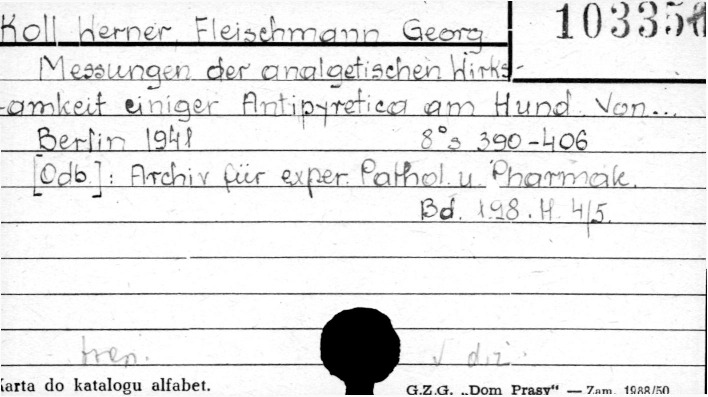 Koll Werner, Fleischmann Georg
103356
Messungen der analgetischen Wirks-
-amkeit einiger Antipyretica am Hund. Von...
Berlin 1941 8°s 390-406
[Odb.]: Archiv für exper. Pathol. u. Pharmak.
Bd. 198. H. 4/5.
Karta do katalogu alfabet.
G.Z.G. „Dom Prasy" — Zam. 1988/50